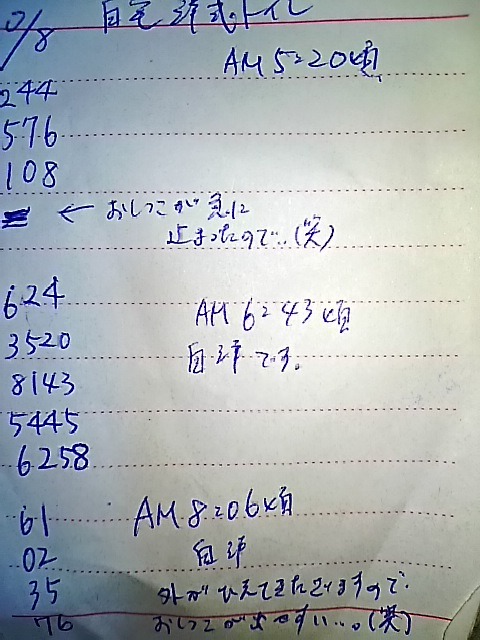 0/8 自宅洋式トイレ
AM 5:20頃
244
576
108
← おしっこが急に
止まったので‥(笑)
624
AM 6:43頃
3520
自洋です。
8143
5445
6258
61 AM 8:06頃
02 自洋
35 外がひえてきたますので
76 おしっこが近い…。(笑)